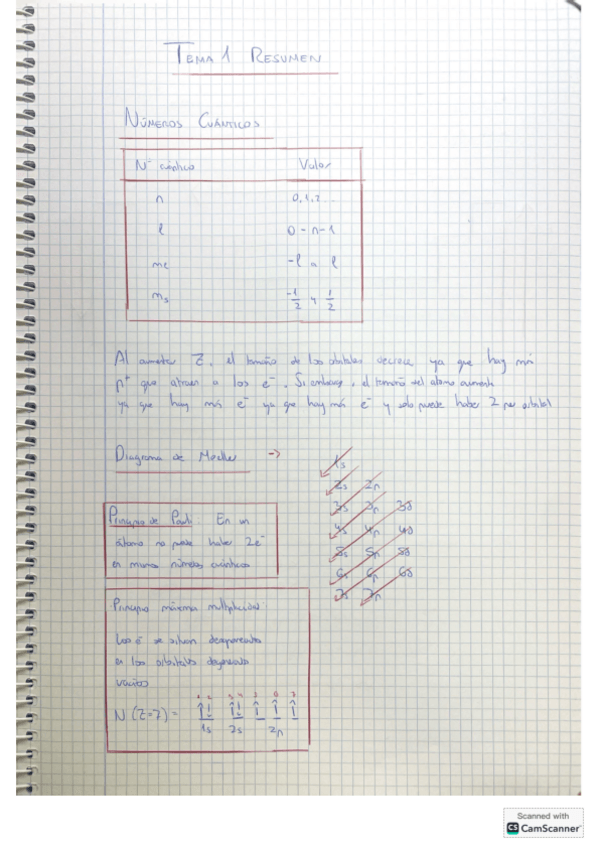 TEMA 1 RESUMEN
NÚMEROS CUÁNTICOS
Nº cuántico Valor
n 0, 1, 2 ...
l 0 - n-1
ml -l a l
ms -1/2 y 1/2
Al aumentar Z, el tamaño de los orbitales decrece ya que hay más
p+ que atraen a los e-. Sin embargo, el tamaño del átomo aumenta
ya que hay más e- ya que hay más e- y solo puede haber 2 por orbital
Diagrama de Moeller ->
1s
2s 2p
3s 3p 3d
4s 4p 4d
5s 5p 5d
6s 6p 6d
7s 7p
Principio de Pauli: En un
átomo no puede haber 2e-
en mismos números cuánticos
Principio máxima multiplicidad:
Los e- se sitúan desapareados
en los orbitales degenerados
vacíos
1 2 3 4 5 6 7
N (Z=7) =
1s 2s 2p
Scanned with
CS CamScanner